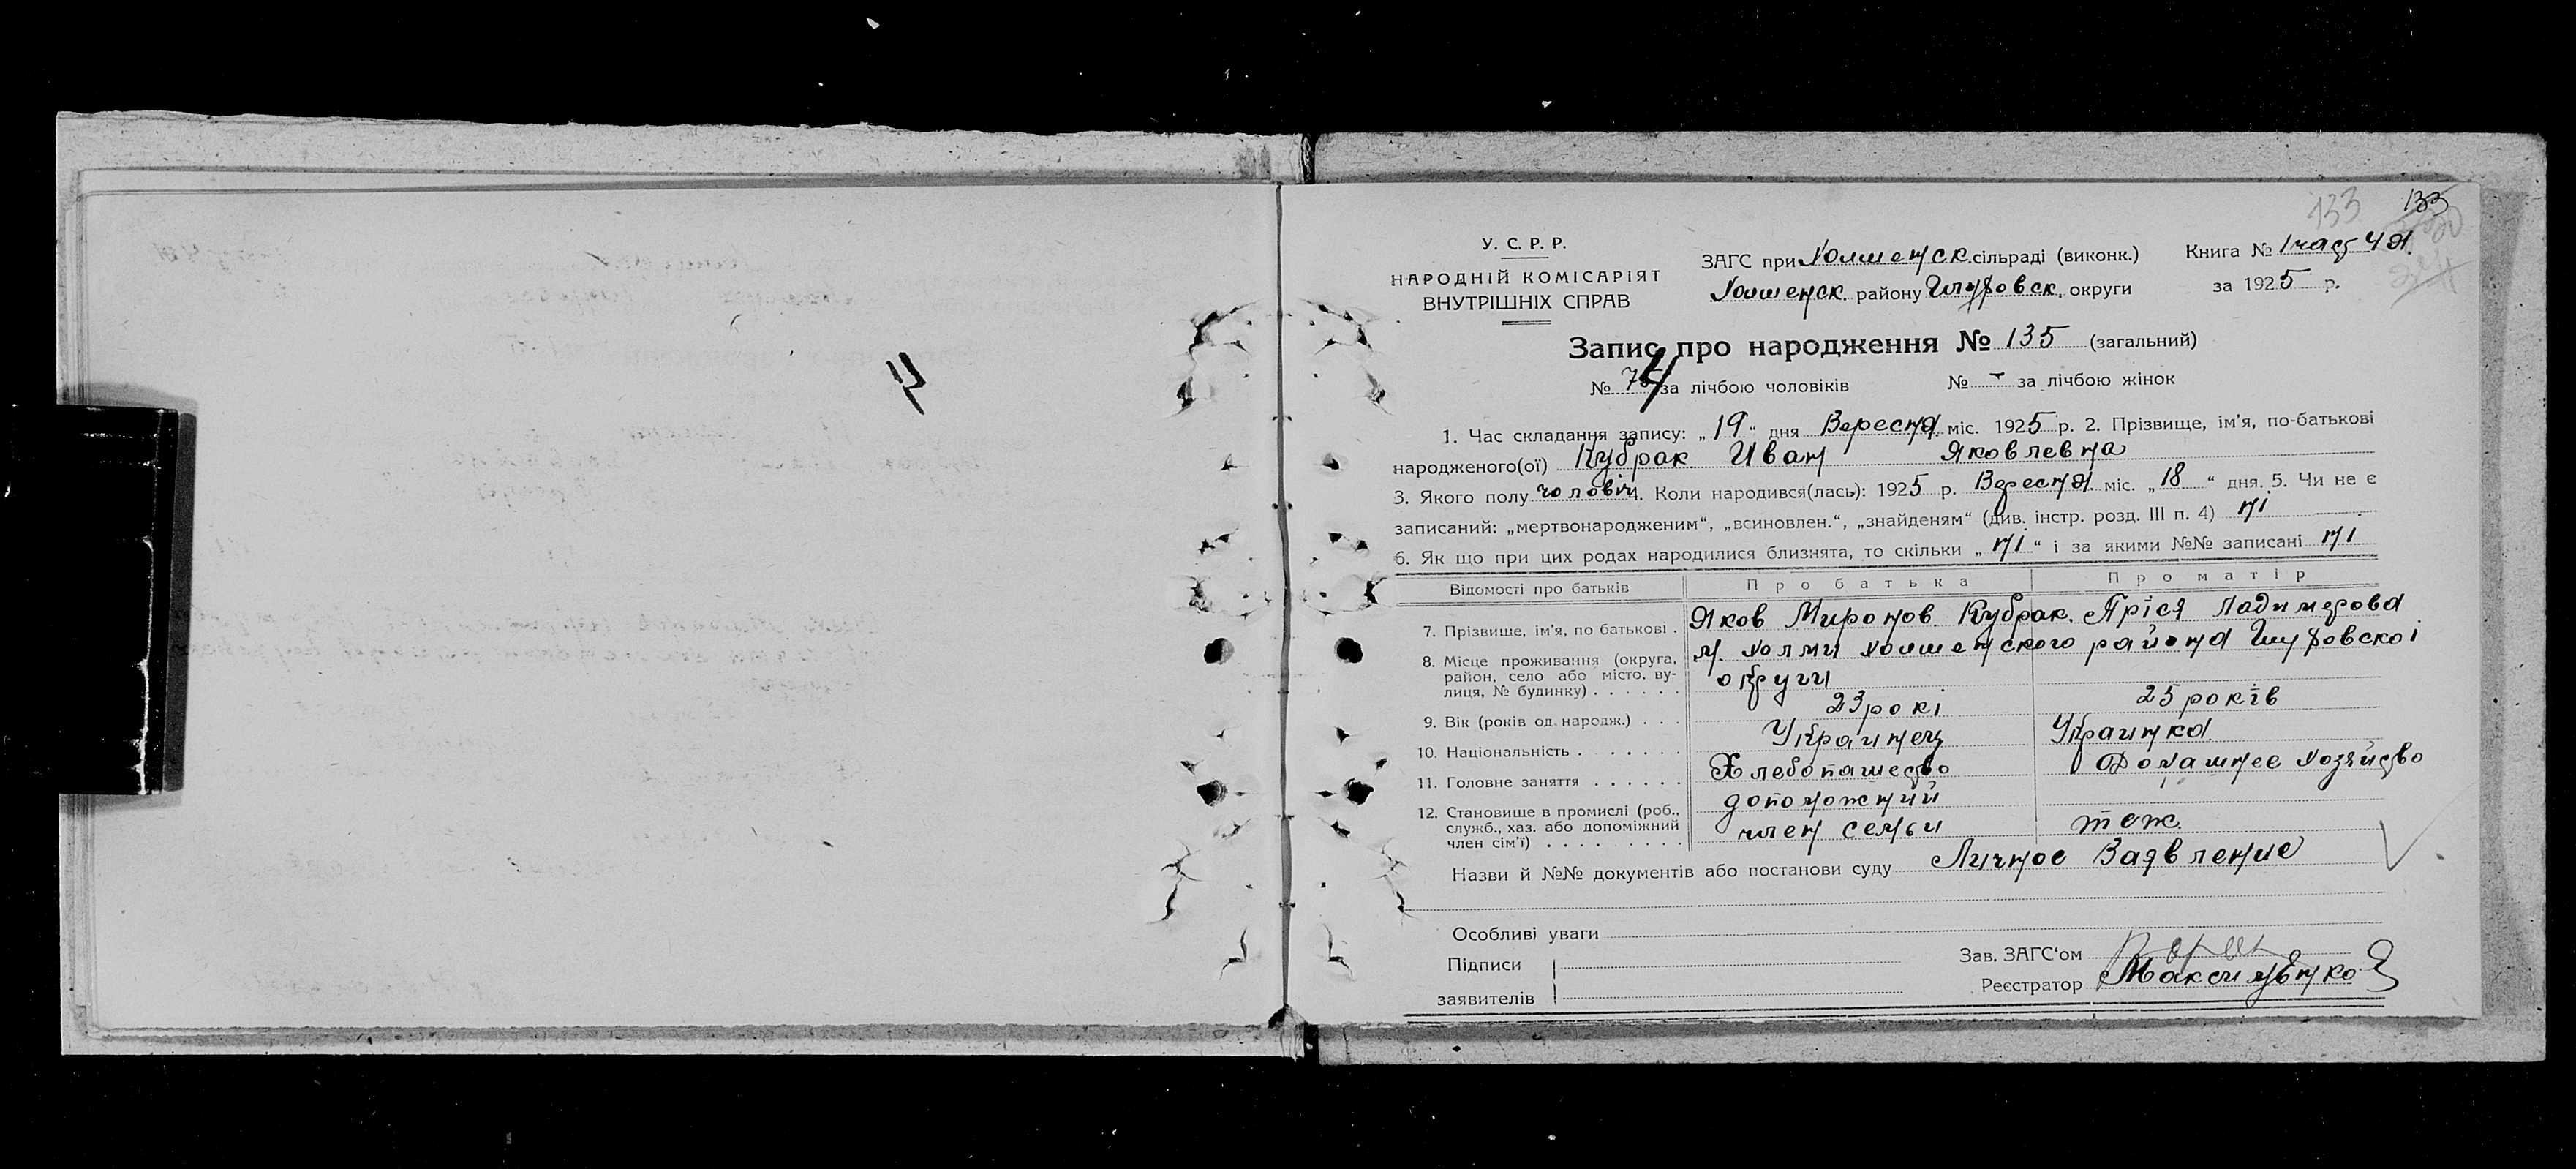 133 133
У. С. Р. Р.
НАРОДНІЙ КОМІСАРІЯТ
ВНУТРІШНІХ СПРАВ
ЗАГС при Холменск. сільраді (виконк.)
Холменск. району Глуховск. округи
Книга № 1 часть 4я
за 1925 р.
Запис про народження № 135 (загальний)
№ за лічбою чоловіків № - за лічбою жінок
4
1. Час складання запису: „19“ дня Вересня міс. 1925 р. 2. Прізвище, ім'я, по-батькові
народженого(ої) Кубрак Иван Яковлевна
3. Якого полу чоловіч 4. Коли народився(лась): 1925 р. Вересня міс. „18“ дня. 5. Чи не є
записаний: „мертвонародженим“, „всиновлен.“, „знайденям“ (див. інстр. розд. III п. 4) ні
6. Як що при цих родах народилися близнята, то скільки „ні“ і за якими №№ записані ні
Відомості про батьків Про батька Про матір
7. Прізвище, ім'я, по батькові . Яков Миронов Кубрак. Пріся Ладимерова
8. Місце проживання (округа, район, село або місто, вулиця, № будинку) . . . . . . м. Холми Холменского района Глуховскоі
округи
9. Вік (років од народж.) . . . 23 рокі 25 років
10. Національність . . . . . . . Украинец Украинка
11. Головне заняття . . . . . . Хлебопашество Домашнее хозяйство
12. Становище в промислі (роб., служб., хаз. або допоміжний член сім'ї) . . . . . . . . . допоможний
член семьи тож.
Назви й №№ документів або постанови суду Личное Заявление
Особливі уваги
Підписи
заявителів
Зав. ЗАГС'ом
Реєстратор Максименко
4